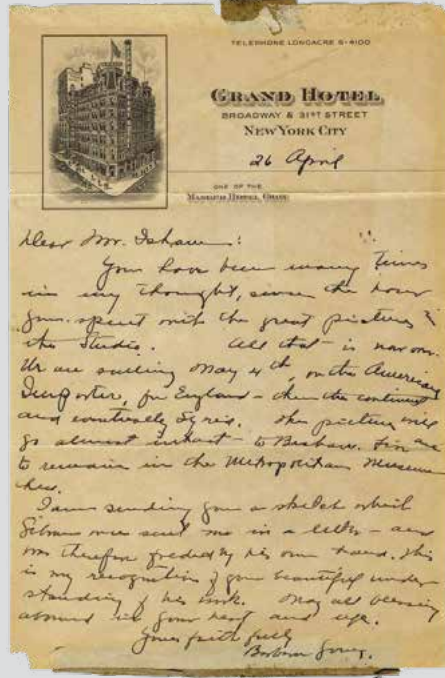 TELEPHONE LONGACRE 5-4100
GRAND HOTEL
BROADWAY & 31ST STREET
NEW YORK CITY
26 April
ONE OF THE
HOTEL
Dear Mr.
You have been many times
in my thought, since the hour
you spent with the great pictures in
the Studio. All that is now over.
We are sailing May 4th, on the American
for England - then the continent
and eventually Syria. The pictures will
go almost intact - to Bsharri. Five are
to remain in the Metropolitan Museum
here.
I am sending you a sketch which
Gibran once sent me in a letter - and
was therefore folded by his own hand. This
is my recognition of your beautiful under-
standing of his work. May all blessing
abound in your heart and life.
Yours faithfully
Barbara Young.